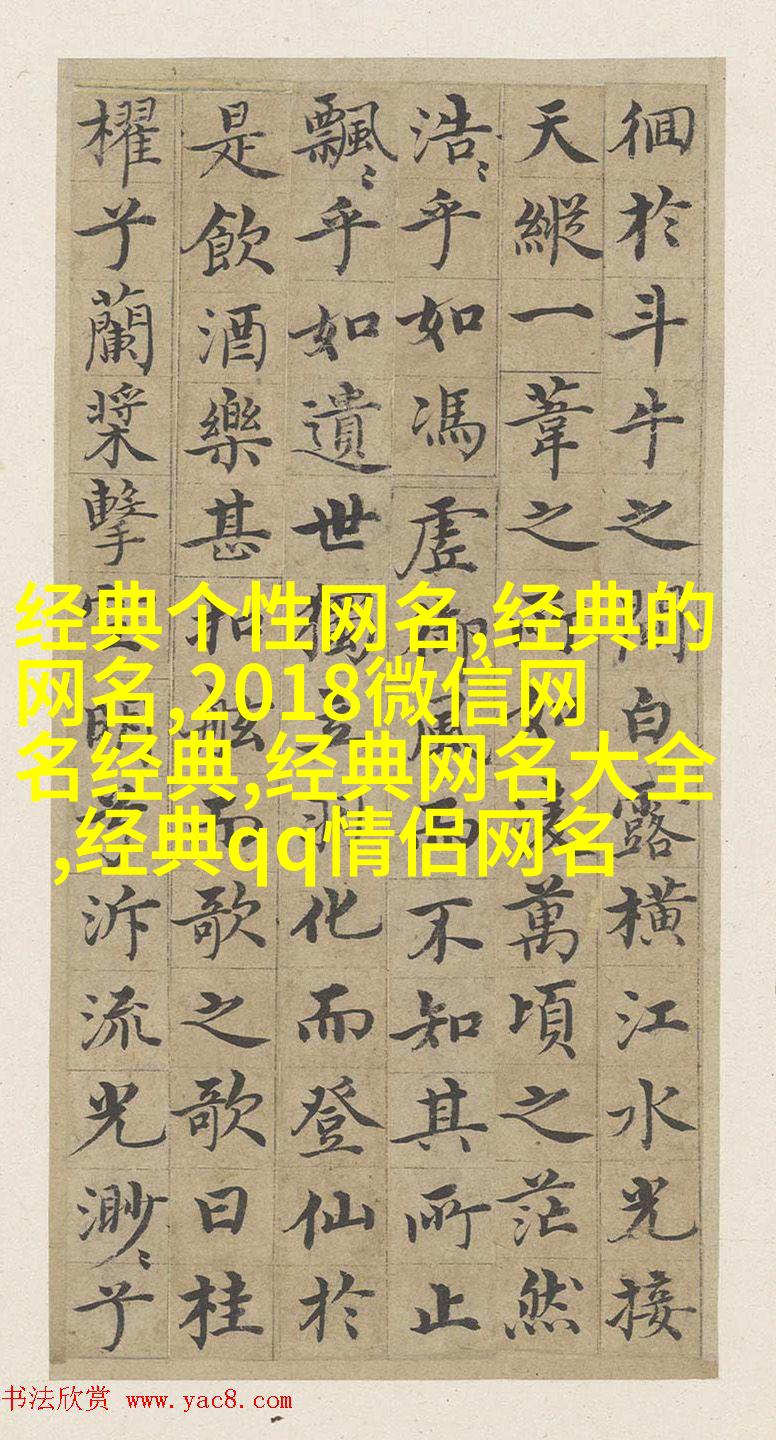 徊於斗牛之間白露橫江水光接
天縱一葦之所如凌萬頃之茫然
浩〻乎如馮虛御風而不知其所止
飄〻乎如遺世獨立羽化而登仙於
是飲酒樂甚扣舷而歌之歌曰桂
櫂兮蘭槳擊空明兮泝流光渺〻兮
经典个性网名,经典的
网名,2018微信网
名经典,经典网名大全
,经典qq情侣网名
书法欣赏 www.yac8.com